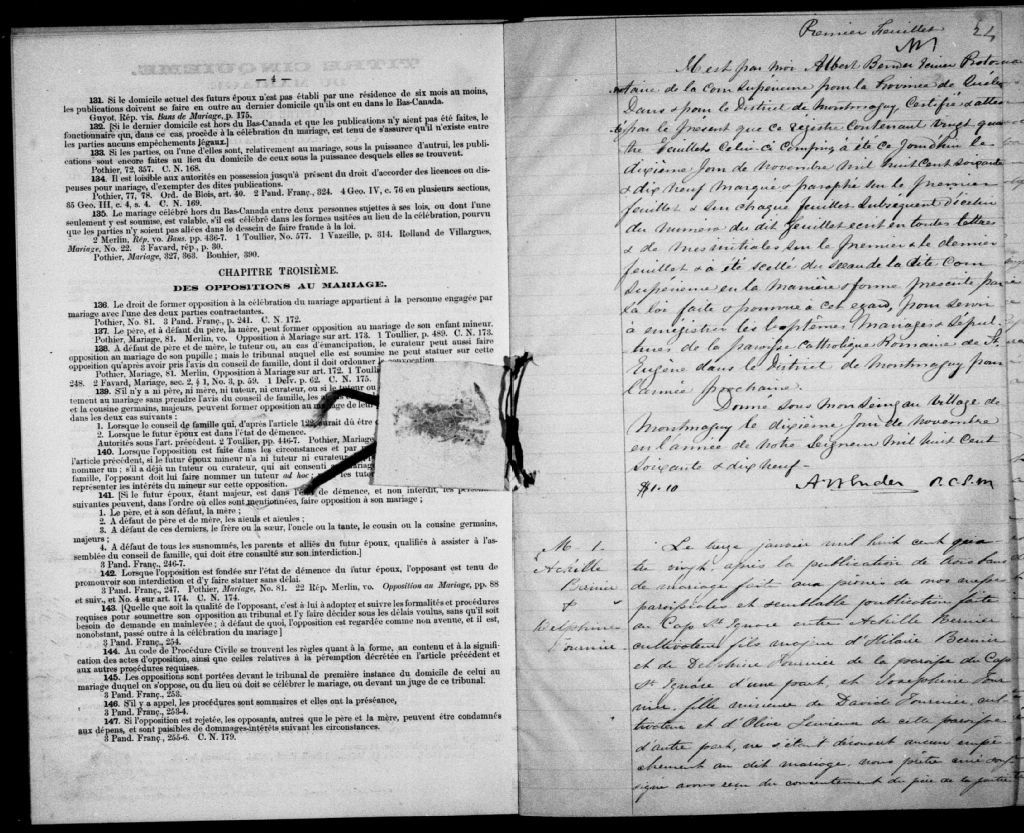 — 4 —
131. Si le domicile actuel des futurs époux n'est pas établi par une résidence de six mois au moins,
les publications doivent se faire en outre au dernier domicile qu'ils ont eu dans le Bas-Canada.
Guyot. Rép. vis. Bans de Mariage, p. 175.
132. [Si le dernier domicile est hors du Bas-Canada et que les publications n'y aient pas été faites, le
fonctionnaire qui, dans ce cas, procède à la célébration du mariage, est tenu de s'assurer qu'il n'existe entre
les parties aucuns empêchements légaux.]
133. Si les parties, ou l'une d'elles sont, relativement au mariage, sous la puissance d'autrui, les publi-
cations sont encore faites au lieu du domicile de ceux sous la puissance desquels elles se trouvent.
Pothier, 72, 357. C. N. 168.
134. Il est loisible aux autorités en possession jusqu'à présent du droit d'accorder des licences ou dis-
penses pour mariage, d'exempter des dites publications.
Pothier, 77, 78. Ord. de Blois, art. 40. 2 Pand. Franç., 324. 4 Geo. IV, c. 76 en plusieurs sections,
35 Geo. III, c. 4, s. 4. C. N. 169.
135. Le mariage célébré hors du Bas-Canada entre deux personnes sujettes à ses lois, ou dont l'une
seulement y est soumise, est valable, s'il est célébré dans les formes usitées au lieu de la célébration, pourvu
que les parties n'y soient pas allées dans le dessein de faire fraude à la loi.
2 Merlin, Rép. vo. Bans. pp. 436-7. 1 Toullier, No. 577. 1 Vazeille, p. 314. Rolland de Villargues,
Mariage, No. 22. 3 Favard, rép., p. 30.
Pothier, Mariage, 327, 363. Bouhier, 390.
CHAPITRE TROISIÈME.
DES OPPOSITIONS AU MARIAGE.
136. Le droit de former opposition à la célébration du mariage appartient à la personne engagée par
mariage avec l'une des deux parties contractantes.
Pothier, No. 81. 3 Pand. Franç., p. 241. C. N. 172.
137. Le père, et à défaut du père, la mère, peut former opposition au mariage de son enfant mineur.
Pothier, Mariage, 81. Merlin, vo. Opposition à Mariage sur art. 173. 1 Toullier, p. 489. C. N. 173.
138. A défaut de père et de mère, le tuteur ou, au cas d'émancipation, le curateur peut aussi faire
opposition au mariage de son pupille; mais le tribunal auquel elle est soumise ne peut statuer sur cette
opposition qu'après avoir pris l'avis du conseil de famille, dont il doit ordonner le convocation.
Pothier, Mariage, 81. Merlin, Opposition à Mariage sur art. 172. 1 Toull
248. 2 Favard, Mariage, sec. 2, § 1, No. 3, p. 59. 1 Delv. p. 62. C. N. 175.
139. S'il n'y a ni père, ni mère, ni tuteur, ni curateur, ou si le tuteur ou
tement au mariage sans prendre l'avis du conseil de famille, les
et la cousine germains, majeurs, peuvent former opposition au mariage de leur
dans les deux cas suivants:
1. Lorsque le conseil de famille qui, d'après l'article 122, aurait dû être
2. Lorsque le futur époux est dans l'état de démence.
Autorités sous l'art. précédent. 2 Toullier, pp. 446-7. Pothier, Mariage
140. Lorsque l'opposition est faite dans les circonstances et par
l'article précédent, si le futur époux mineur n'a ni tuteur ni curateur,
nommer un; s'il a déjà un tuteur ou curateur, qui ait consenti au
famille, l'opposant doit lui faire nommer un tuteur ad hoc; les tute
représenter les intérêts du mineur sur cette opposition.
141. [Si le futur époux, étant majeur, est dans l'état de démence, et non interdit, les personnes
suivantes peuvent, dans l'ordre où elles sont mentionnées, faire opposition à son mariage;
1. Le père, et à son défaut, la mère;
2. A défaut de père et de mère, les aïeuls et aïeules;
3. A défaut de ces derniers, le frère ou la sœur, l'oncle ou la tante, le cousin ou la cousine germains,
majeurs;
4. A défaut de tous les susnommés, les parents et alliés du futur époux, qualifiés à assister à l'as-
semblée du conseil de famille, qui doit être consulté sur son interdiction.]
3 Pand. Franç., 246-7.
142. Lorsque l'opposition est fondée sur l'état de démence du futur époux, l'opposant est tenu de
promouvoir son interdiction et d'y faire statuer sans délai.
3 Pand. Franç., 247. Pothier, Mariage, No. 81. 22 Rép. Merlin, vo. Opposition au Mariage, pp. 88
et suiv., et No. 4 sur art. 174. C. N. 174.
143. [Quelle que soit la qualité de l'opposant, c'est à lui à adopter et suivre les formalités et procédures
requises pour soumettre son opposition au tribunal et l'y faire décider sous les délais voulus, sans qu'il soit
besoin de demande en mainlevée; à défaut de quoi, l'opposition est regardée comme non avenue, et il est,
nonobstant, passé outre à la célébration du mariage]
3 Pand. Franç., 254.
144. Au code de Procédure Civile se trouvent les règles quant à la forme, au contenu et à la signifi-
cation des actes d'opposition, ainsi que celles relatives à la péremption décrétée en l'article précédent et
aux autres procédures requises.
145. Les oppositions sont portées devant le tribunal de première instance du domicile de celui au
mariage duquel on s'oppose, ou du lieu où doit se célébrer le mariage, ou devant un juge de ce tribunal.
3 Pand. Franç., 253.
146. S'il y a appel, les procédures sont sommaires et elles ont la préséance,
3 Pand. Franç., 253-4.
147. Si l'opposition est rejetée, les opposants, autres que le père et la mère, peuvent être condamnés
aux dépens, et sont passibles de dommages-intérêts suivant les circonstances.
3 Pand. Franç., 255-6. C. N. 179.
Premier Feuillet
24
par moi Albert Bender Ecuier Proto
taire de la Cour Supérieure pour la Province de Québec
Dans & pour le District de Montmagny Certifié & attes
té par le présent que ce régistre contenant vingt qua
tre feuillets celui-ci compris a été ce Jourd'hui le
dixième Jour de novembre mil huit Cent Soixante
& dix neuf marqué & paraphé sur le premier
feuillet & sur chaque feuillet Subséquent
du numéro du dit feuillet écrit en toutes lettres
& de mes initiales sur le premier & le dernier
feuillet & a été scellé du sceau de la dite Cour
Supérieure en la manière & forme prescrite par
la loi faite & pourvue à cet égard, pour servir
à enregistrer les baptêmes Mariages & Sépul
tures de la paroisse Catholique Romaine de St.
Eugène dans le District de Montmagny pour
l'année prochaine.
Donné sous mon Seing au Village de
Montmagny le dixième Jour de novembre
en l'année de notre Seigneur mil huit Cent
Soixante & dix neuf -
$1.10 A Bender P.C.S.M
M. 1.
Achille
Bernier
&
Fournier
Le treize janvier mil huit cent qua
tre vingt, après la publication de trois bans
de mariage fait aux prônes de nos messes
paroissiales et semblable publication faite
au Cap St Ignace entre Achille Bernier
cultivateur fils majeur d'Hilaire Bernier
et de Delphine Fournier de la paroisse du Cap
St Ignace d'une part, et Joséphine Four
nier, fille mineure de David Fournier, cul
tivateur et d'Olive de cette paroisse
d'autre part, ne s'étant découvert aucun empê
chement au dit mariage, nous prêtre curé sous
signé avons reçu du consentement du père de la partie